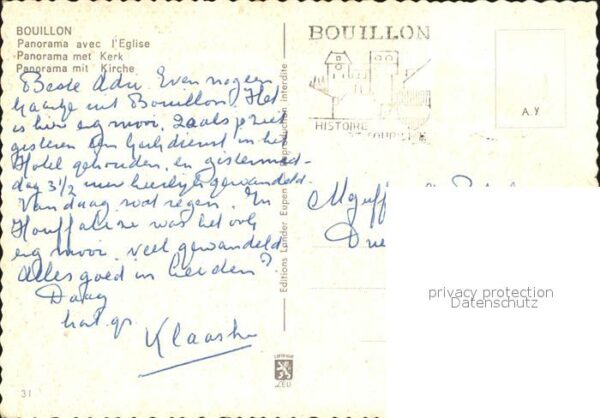 BOUILLON
Panorama avec l'Eglise
Panorama met Kerk
Panorama mit Kirche
Beste Adri. Even nog een
kaartje uit Bouillon. Het
is hier erg mooi. Zoals je ziet
gisteren een kerkdienst in het
Hotel gehouden, en gistermid-
dag 3½ uur heerlijk gewandeld.
Vandaag wat regen. In
Houffalize was het ook
erg mooi, veel gewandeld
Alles goed in Leiden?
Daag
hart. gr.
Klaasha
31
Editions Lander Eupen
Reproduction interdite
LEU
BOUILLON
HISTOIRE
TOURISME
A.Y
Mejuff
privacy protection
Datenschutz